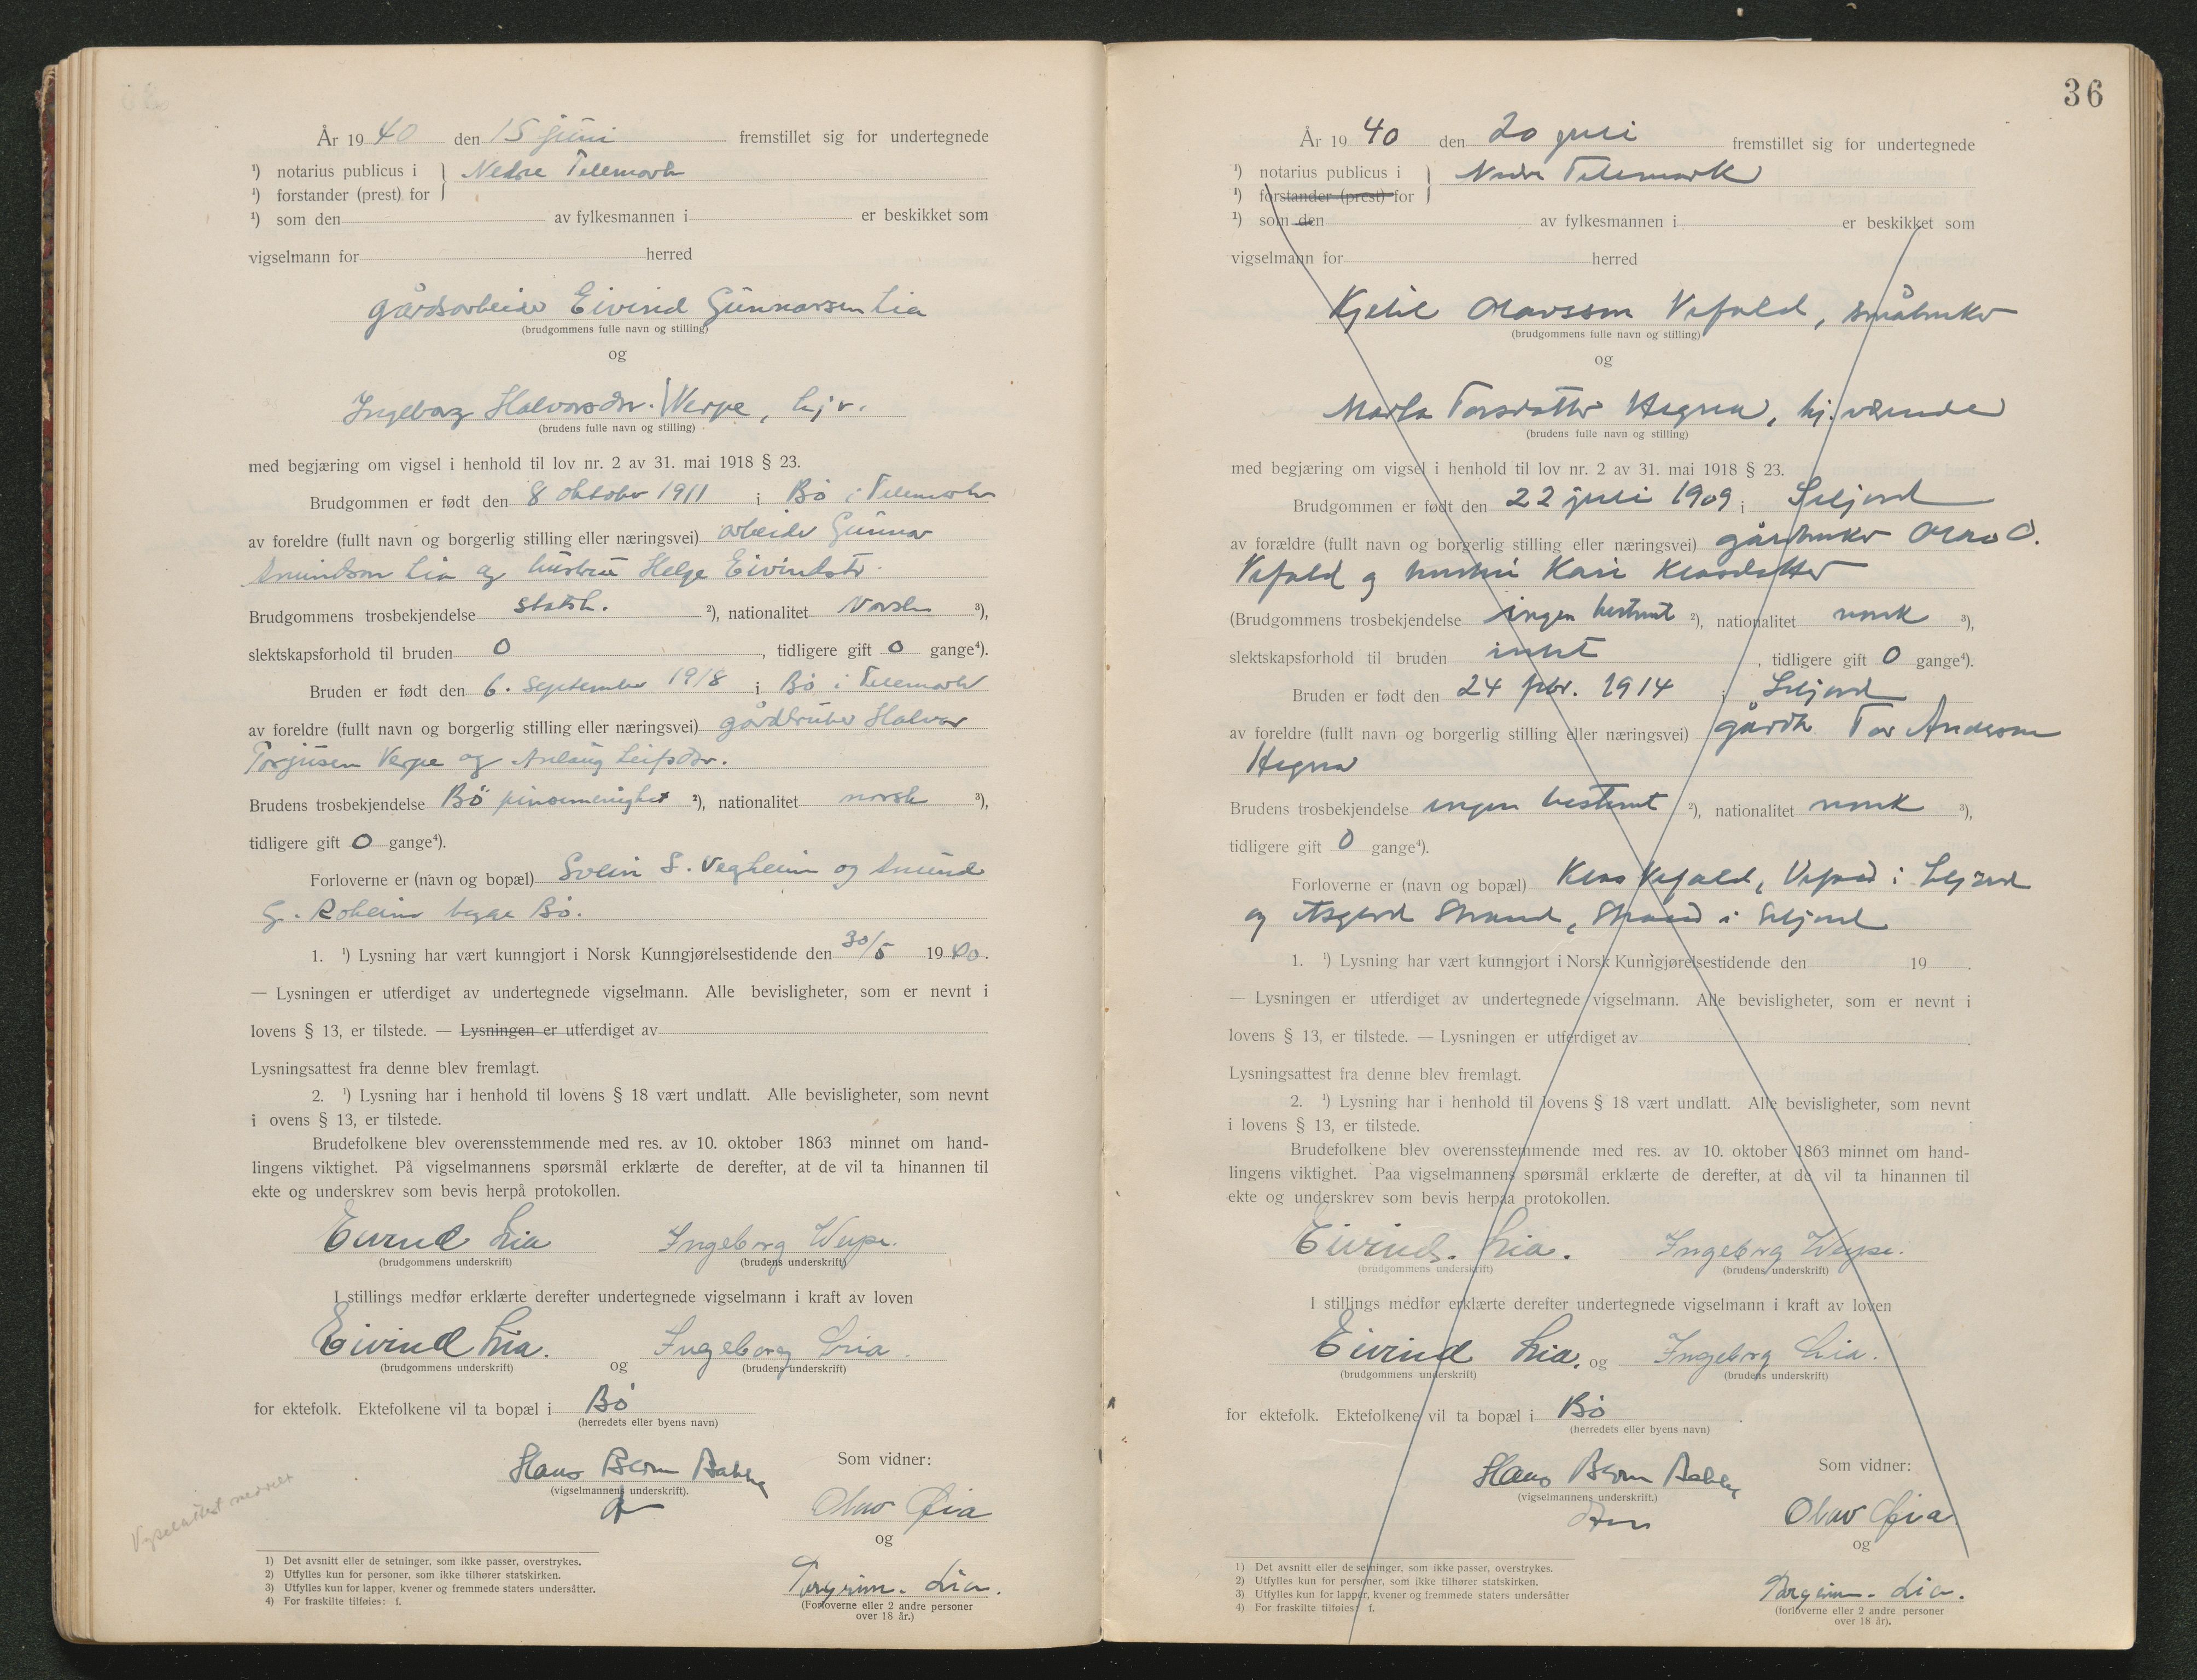 År 19 40 den 15 juni fremstillet sig for undertegnede
¹) notarius publicus i } Nedre Telemark
¹) forstander (prest) for
¹) som den av fylkesmannen i er beskikket som
vigselmann for herred
gårdsarbeider Eivind Gunnarsen Lia
(brudgommens fulle navn og stilling)
og
Ingeborg Halvorsdtr. Verpe, hj.v.
(brudens fulle navn og stilling)
med begjæring om vigsel i henhold til lov nr. 2 av 31. mai 1918 § 23.
Brudgommen er født den 8 oktober 1911 i Bø i Telemark
av foreldre (fullt navn og borgerlig stilling eller næringsvei) arbeider Gunnar
Amundsen Lia og hustru Helge Eivindsdtr.
Brudgommens trosbekjendelse statsk. ²), nationalitet Norsk ³),
slektskapsforhold til bruden 0, tidligere gift 0 gange⁴).
Bruden er født den 6. September 1918 i Bø i Telemark
av foreldre (fullt navn og borgerlig stilling eller næringsvei) gårdbruker Halvor
Torjusen Verpe og Anlaug Leifsdtr.
Brudens trosbekjendelse Bø pinsemenighet ²), nationalitet norsk ³),
tidligere gift 0 gange⁴).
Forloverne er (navn og bopæl) Svein S. Vegheim og Amund
G. Roheim begge Bø.
1. ¹) Lysning har vært kunngjort i Norsk Kunngjørelsestidende den 30/5 19 40.
— Lysningen er utferdiget av undertegnede vigselmann. Alle bevisligheter, som er nevnt i
lovens § 13, er tilstede. — Lysningen er utferdiget av
Lysningsattest fra denne blev fremlagt.
2. ¹) Lysning har i henhold til lovens § 18 vært undlatt. Alle bevisligheter, som nevnt
i ovens § 13, er tilstede.
Brudefolkene blev overensstemmende med res. av 10. oktober 1863 minnet om hand-
lingens viktighet. På vigselmannens spørsmål erklærte de derefter, at de vil ta hinannen til
ekte og underskrev som bevis herpå protokollen.
Eivind Lia Ingeborg Verpe.
(brudgommens underskrift) (brudens underskrift)
I stillings medfør erklærte derefter undertegnede vigselmann i kraft av loven
Eivind Lia. og Ingeborg Lia.
(brudgommens underskrift) (brudens underskrift)
for ektefolk. Ektefolkene vil ta bopæl i Bø
(herredets eller byens navn)
Hans Bern
(vigselmannens underskrift).
Som vidner:
Olav Øia
og
Torgrim. Lia.
(Forloverne eller 2 andre personer
over 18 år.)
Vigselattest meddelt
1) Det avsnitt eller de setninger, som ikke passer, overstrykes.
2) Utfylles kun for personer, som ikke tilhører statskirken.
3) Utfylles kun for lapper, kvener og fremmede staters undersåtter.
4) For fraskilte tilføies: f.
36
År 19 40 den 20 juli fremstillet sig for undertegnede
¹) notarius publicus i } Nedre Telemark
¹) forstander (prest) for
¹) som den av fylkesmannen i er beskikket som
vigselmann for herred
Kjetil Olavsson Vefald, småbruker
(brudgommens fulle navn og stilling)
og
Marta Torsdatter Hegna, hj.værende
(brudens fulle navn og stilling)
med begjæring om vigsel i henhold til lov nr. 2 av 31. mai 1918 § 23.
Brudgommen er født den 22 juli 1909 i Seljord
av forældre (fullt navn og borgerlig stilling eller næringsvei) gårdbruker Olav O.
Vefald og hustru Kari Klasdatter
(Brudgommens trosbekjendelse ingen bestemt ²), nationalitet norsk ³),
slektskapsforhold til bruden intet, tidligere gift 0 gange⁴).
Bruden er født den 24 febr. 1914 i Seljord
av foreldre (fullt navn og borgerlig stilling eller næringsvei) gårdbr Tor Anderson
Hegna
Brudens trosbekjendelse ingen bestemt ²), nationalitet norsk ³),
tidligere gift 0 gange⁴).
Forloverne er (navn og bopæl) Klas Vefald, Vefald i Seljord
og Asgerd Strand, Strand i Seljord
1. ¹) Lysning har vært kunngjort i Norsk Kunngjørelsestidende den 19 .
— Lysningen er utferdiget av undertegnede vigselmann. Alle bevisligheter, som er nevnt i
lovens § 13, er tilstede. — Lysningen er utferdiget av
Lysningsattest fra denne blev fremlagt.
2. ¹) Lysning har i henhold til lovens § 18 vært undlatt. Alle bevisligheter, som nevnt
i lovens § 13, er tilstede.
Brudefolkene blev overensstemmende med res. av 10. oktober 1863 minnet om hand-
lingens viktighet. Paa vigselmannens spørsmål erklærte de derefter, at de vil ta hinannen til
ekte og underskrev som bevis herpaa protokollen.
Eivind. Lia. Ingeborg Verpe.
(brudgommens underskrift) (brudens underskrift)
I stillings medfør erklærte derefter undertegnede vigselmann i kraft av loven
Eivind Lia. og Ingeborg Lia.
(brudgommens underskrift) (brudens underskrift)
for ektefolk. Ektefolkene vil ta bopæl i Bø
(herredets eller byens navn)
Hans Bern
(vigselmannens underskrift.)
Som vidner:
Olav Øia
og
Torgrim. Lia.
(forloverne eller 2 andre personer
over 18 år).
1) Det avsnitt eller de setninger, som ikke passer, overstrykes.
2) Utfylles kun for personer, som ikke tilhører statskirken.
3) Utfylles kun for lapper, kvener og fremmede staters undersåtter
4) For fraskilte tilføies: f.